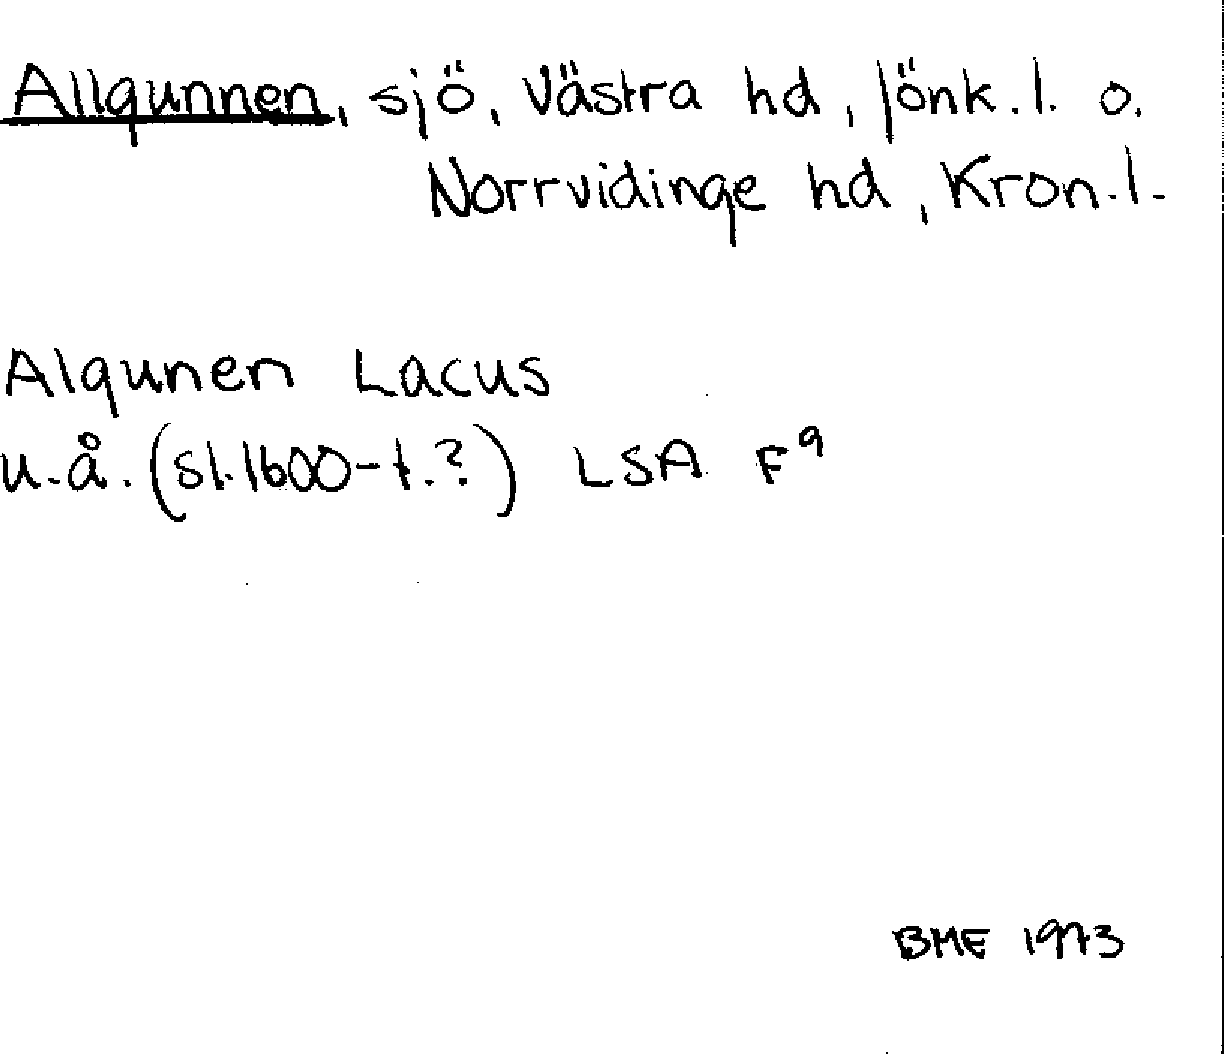 Allgunnen, sjö, Västra hd, Jönk.l. o.
Norrvidinge hd, Kron.l.
Algunen Lacus
u.å. (sl.1600-t.?) LSA F9
BME 1973